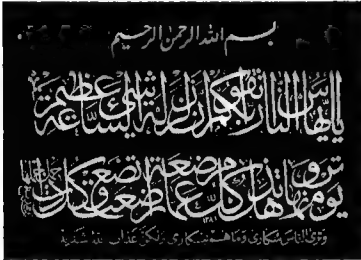 بسم الله الرحمن الرحيم
يا ايها الناس اتقوا ربكم ان زلزلة الساعة شيء عظيم
يوم ترونها تذهل كل مرضعة عما ارضعت وتضع كل ذات حمل حملها
وترى الناس سكارى وما هم بسكارى ولكن عذاب الله شديد